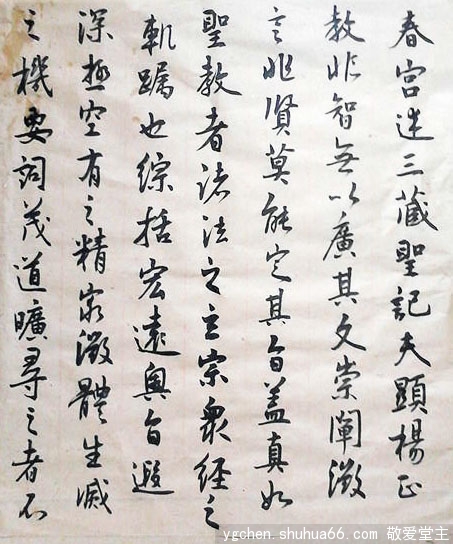 春宮述三藏聖記夫顯楊正
教非智無以廣其文崇闡微
言非賢莫能定其旨蓋真如
聖教者諸法之玄宗衆經之
軌躅也綜括宏遠奧旨遐
深極空有之精家微體生滅
之機要詞茂道曠尋之者不
ygchen.shuhua66.com 敬爱堂主